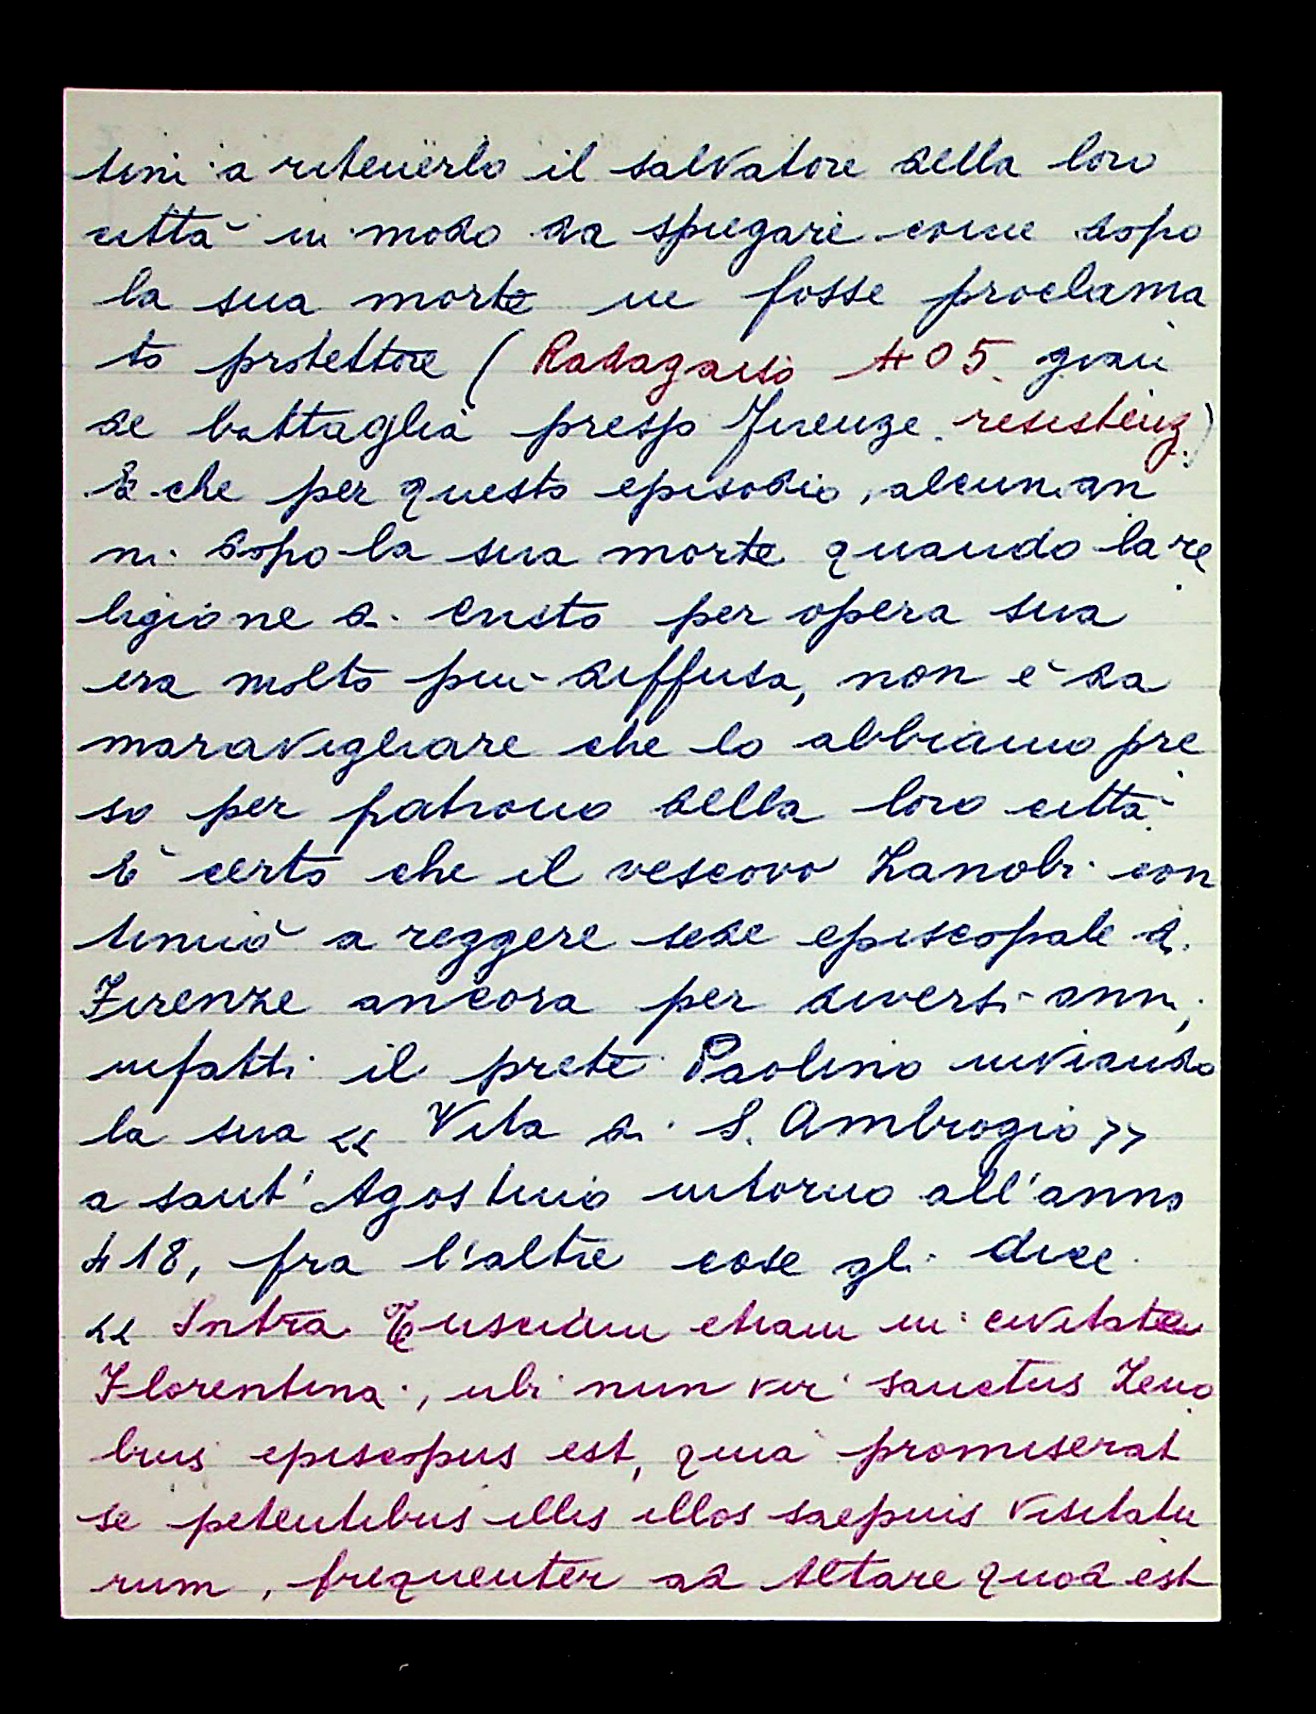 tini a ritenerlo il salvatore della loro
città in modo da spiegare come dopo
la sua morte ne fosse proclama
to protettore ( Radagaiso 405. gran
de battaglia presso Firenze. resistenz.)
E che per questo episodio, alcuni an
ni dopo la sua morte quando la re
ligione di Cristo per opera sua
era molto più diffusa, non è da
maravigliare che lo abbiamo pre
so per patrono della loro città.
E' certo che il vescovo Zanobi con
tinuiò a reggere sede episcopale di
Firenze ancora per diversi anni,
infatti il prete Paolino inviando
la sua « Vita di S. Ambrogio »
a sant' Agostinio intorno all'anno
418, fra l'altre cose gli dice.
« Intra Tusciam etiam in civitate
Florentina, ubi nun vir sanctus Zeno
bius episcopus est, quia promiserat
se petentibus illis illos saepius visitatu
rum, frequenter ad Altare quod est